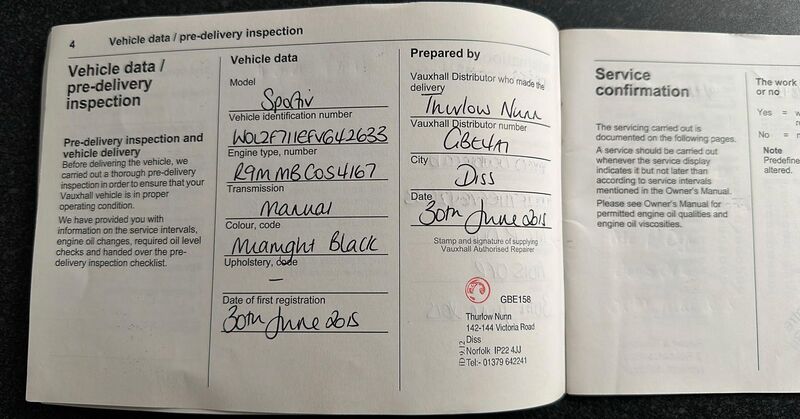 4 Vehicle data / pre-delivery inspection
Vehicle data /
pre-delivery
inspection
Pre-delivery inspection and
vehicle delivery
Before delivering the vehicle, we
carried out a thorough pre-delivery
inspection in order to ensure that your
Vauxhall vehicle is in proper
operating condition.
We have provided you with
information on the service intervals,
engine oil changes, required oil level
checks and handed over the pre-
delivery inspection checklist.
Vehicle data
Model
Sportiv
Vehicle identification number
W0L2F711EFV642633
Engine type, number
R9MMBC054167
Transmission
Manual
Colour, code
Midnight Black
Upholstery, code
–
Date of first registration
30th June 2015
Prepared by
Vauxhall Distributor who made the
delivery
Thurlow Nunn
Vauxhall Distributor number
City
Diss
Date
30th June 2015
Stamp and signature of supplying
Vauxhall Authorised Repairer
GBE158
Thurlow Nunn
142-144 Victoria Road
Diss
Norfolk IP22 4JJ
Tel:- 01379 642241
Service
confirmation
The servicing carried out is
documented on the following pages.
A service should be carried out
whenever the service display
indicates it but not later than
according to service intervals
mentioned in the Owner's Manual.
Please see Owner's Manual for
permitted engine oil qualities and
engine oil viscosities.
The work
or no
Yes =
No =
Note
Predefine
altered.